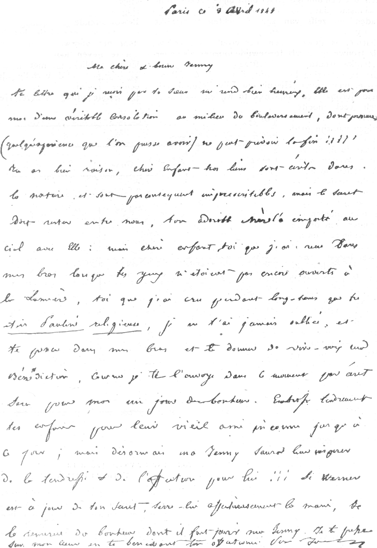 Paris ce 9 Avril 1848
Ma chère & bonne Jenny
ta lettre que je reçois par ta Sœur m'rend bien heureux, Elle est pour
moi d'une véritable Consolation au milieu du bouleversement, dont personne
(quelqu'expérience que l'on puisse avoir) ne peut prévoir la fin !!!!
Tu as bien raison, chère Enfant nos liens sont écrits dans
la nature, et sont par conséquent imprescriptibles, mais le Secret
doit rester entre nous, ton adorable Mère l'a emporté au
ciel avec Elle : mais chère enfant, toi que j'ai reçue Dans
mes bras lorsque tes yeux n'étoient pas encore ouverts à
la Lumière, toi que j'ai cru pendant long-tems que tu
étais religieuse, je ne t'ai jamais oubliée, et
te presser dans mes bras et te donner de vive-voix ma
Bénédiction, Comme je te l'envoye Dans ce moment
Sera pour moi un jour de bonheur. Embrasse tendrement
tes enfans pour leur vieil ami inconnu jusqu'à
Ce jour ; mais désormais ma Jenny Saura leur inspirer
de la tendresse & de l'affection pour lui !!! Mr Warner
est à jour de ton Secret, Serre-lui affectueusement la main, Je
le remercie du bonheur dont il fait jouir ma Jenny. Je te presse
Sur mon Cœur en te bénissant ton